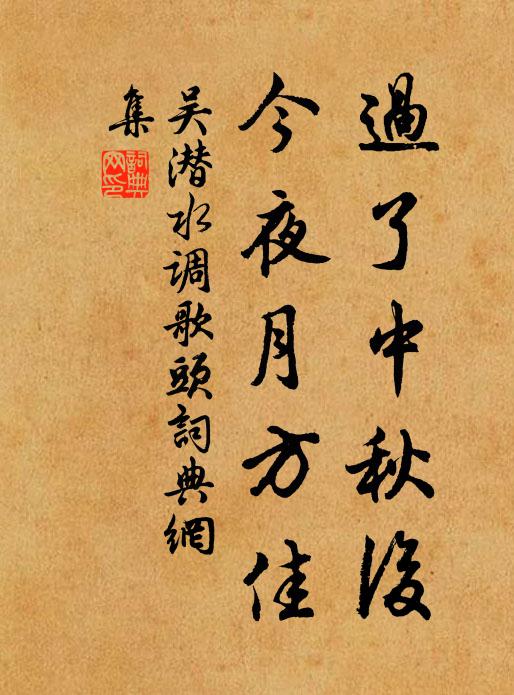 過了中秋後
今夜月方佳
吴潜水调歌頭詞典網
集
詞典网印